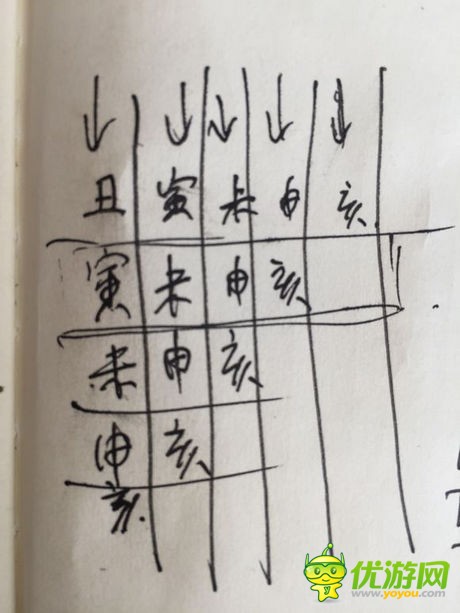 丑 寅 未 申 亥
寅 未 申 亥
未 申 亥
申 亥
亥
优游网
www.yoyou.com